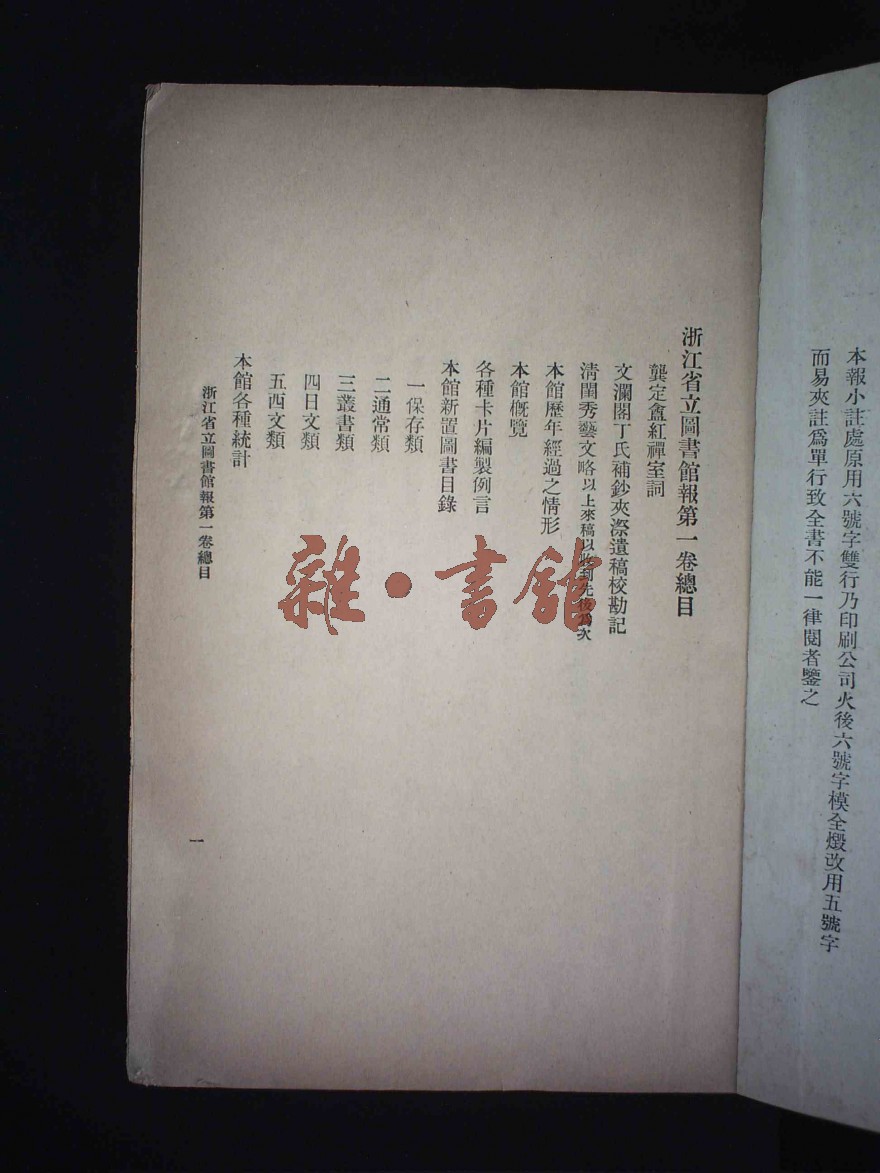 本報小註處原用六號字雙行乃印刷公司火後六號字模全燬改用五號字
而易夾註爲單行致全書不能一律閱者鑒之
浙江省立圖書館報第一卷總目
龔定盦紅禪室詞
文瀾閣丁氏補鈔夾漈遺稿校勘記
清閨秀藝文略以上來稿以收到先後爲次
本館歷年經過之情形
本館概覽
各種卡片編製例言
本館新置圖書目錄
一保存類
二通常類
三叢書類
四日文類
五西文類
本館各種統計
浙江省立圖書館報第一卷總目
一
雜·書館